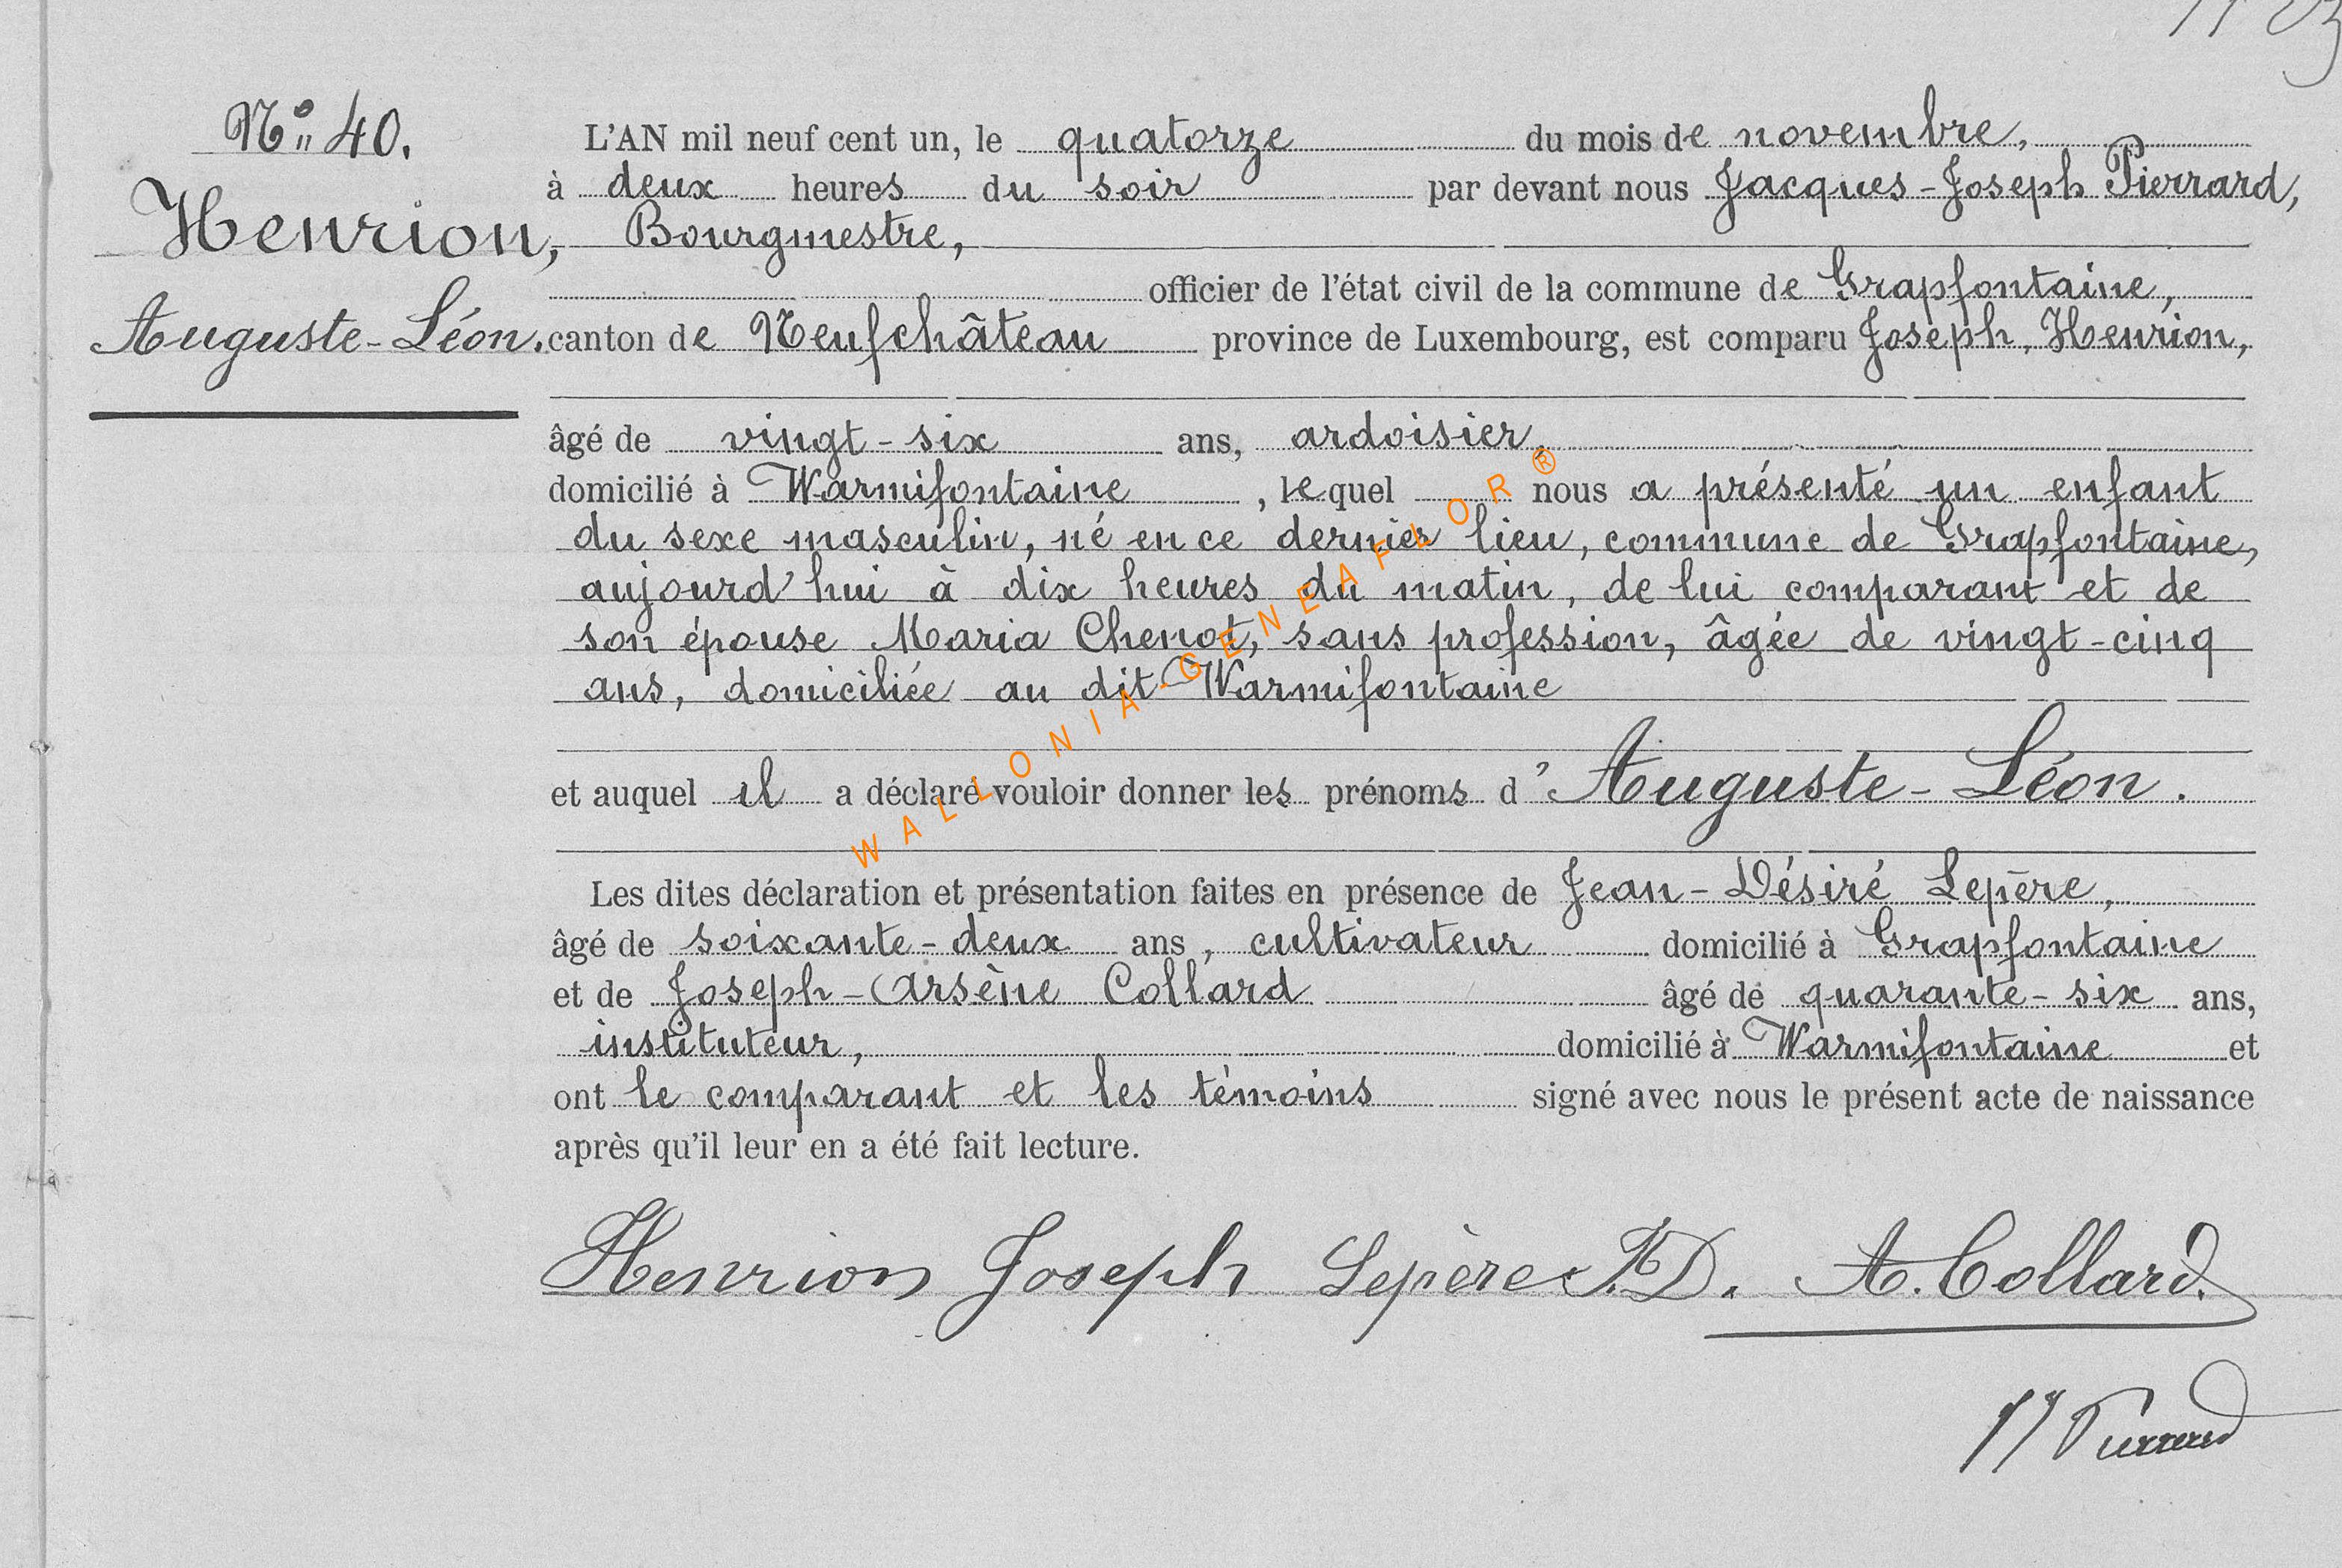 N° 40.
Henrion,
Auguste-Léon.
L'AN mil neuf cent un, le quatorze du mois de novembre,
à deux heures du soir par devant nous Jacques-Joseph Pierrard,
Bourgmestre,
officier de l'état civil de la commune de Grapfontaine,
canton de Neufchâteau province de Luxembourg, est comparu Joseph, Henrion,
âgé de vingt-six ans, ardoisier,
domicilié à Warmifontaine, lequel nous a présenté un enfant
du sexe masculin, né en ce dernier lieu, commune de Grapfontaine,
aujourd'hui à dix heures du matin, de lui comparant et de
son épouse Maria Chenot, sans profession, âgée de vingt-cinq
ans, domiciliée au dit Warmifontaine
et auquel il a déclaré vouloir donner les prénoms d'Auguste-Léon.
Les dites déclaration et présentation faites en présence de Jean-Désiré Lepère,
âgé de soixante-deux ans, cultivateur domicilié à Grapfontaine
et de Joseph-Arsène Collard âgé de quarante-six ans,
instituteur, domicilié à Warmifontaine et
ont le comparant et les témoins signé avec nous le présent acte de naissance
après qu'il leur en a été fait lecture.
Henrion Joseph Lepère J.D. A. Collard.
JJ Pierrard
WALLONIA-GENEAFLOR®